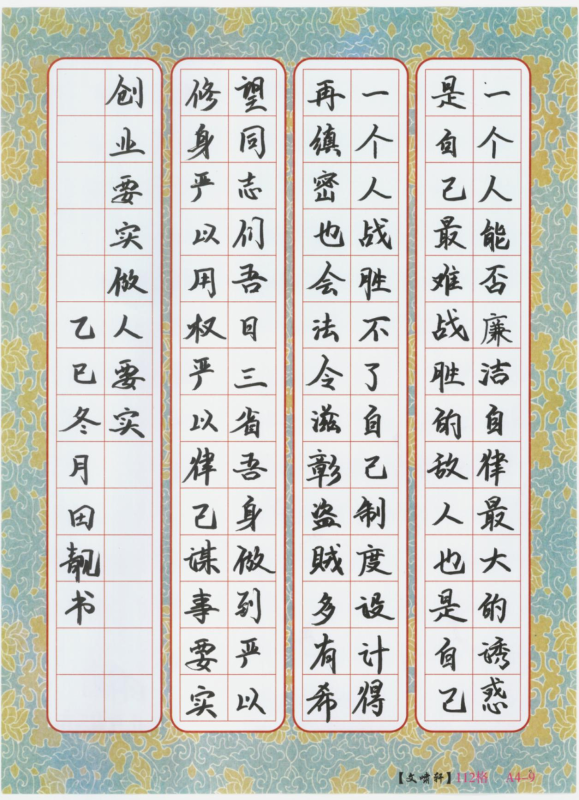 一个人能否廉洁自律最大的诱惑
是自己最难战胜的敌人也是自己
一个人战胜不了自己制度设计得
再缜密也会法令滋彰盗贼多有希
望同志们吾日三省吾身做到严以
修身严以用权严以律己谋事要实
创业要实做人要实
乙巳冬月田靓书
【文啸轩】112格 A4-9